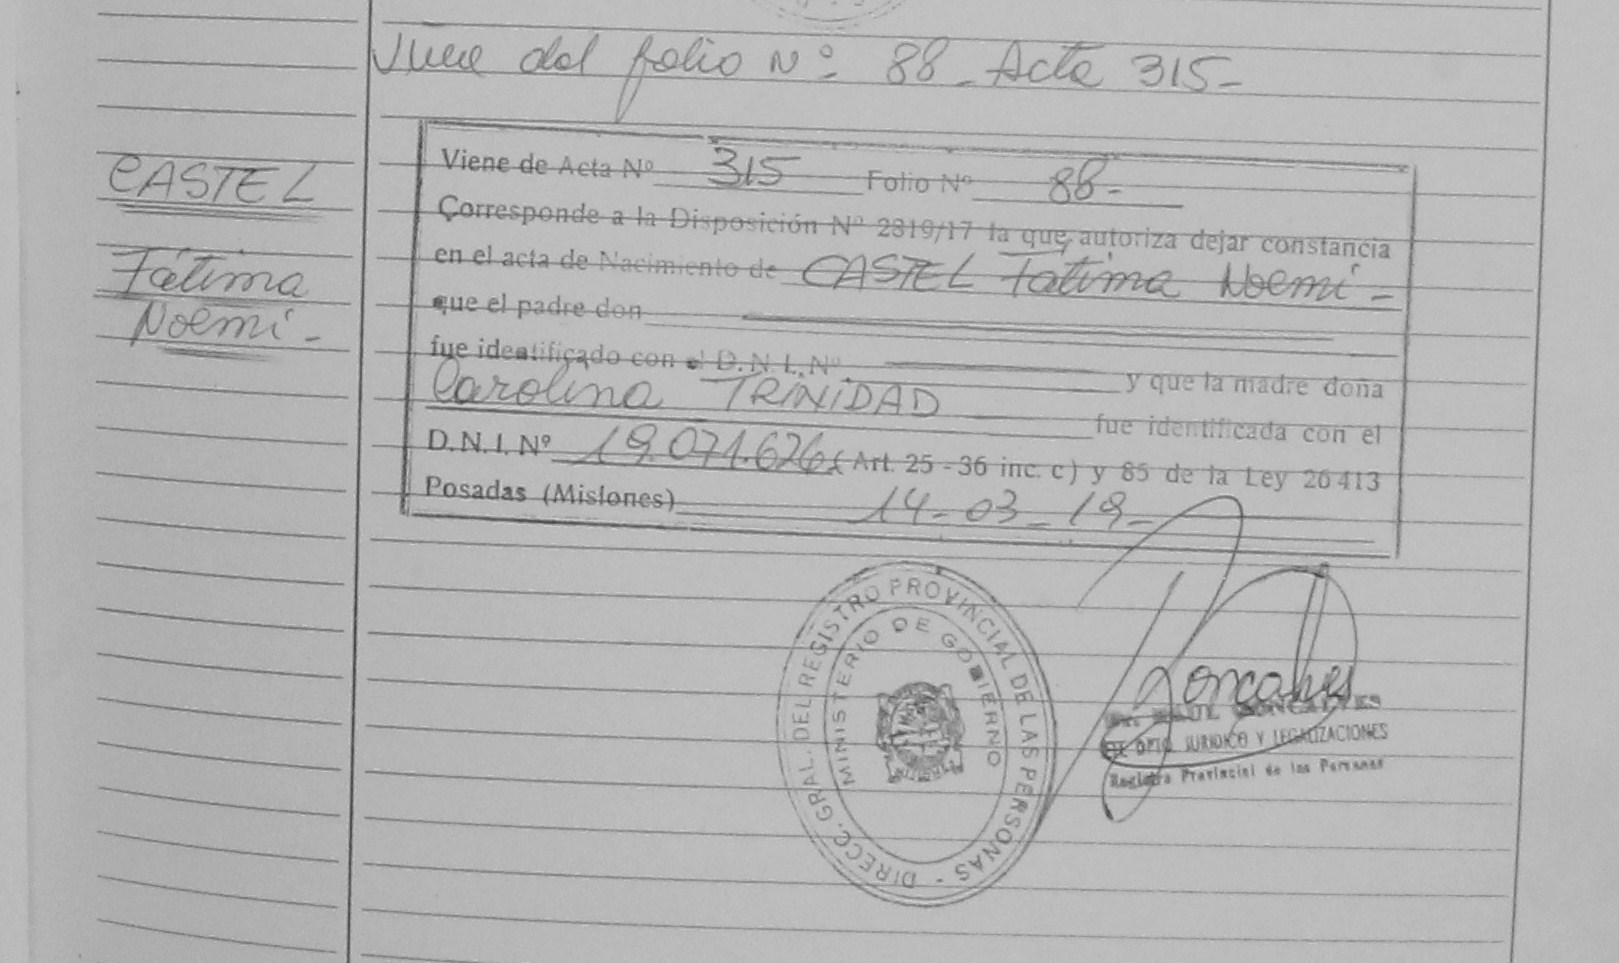 Viene del folio Nº 88 - Acta 315 -
CASTEL
Fátima
Noemí -
Viene de Acta Nº 315 Folio Nº 88 -
Corresponde a la Disposición Nº 2819/17 la que autoriza dejar constancia
en el acta de Nacimiento de CASTEL Fatima Noemí -
que el padre don
fue identificado con el D.N.I. Nº y que la madre doña
Carolina TRINIDAD fue identificada con el
D.N.I. Nº 19.071.626 (Art. 25 - 36 inc. c) y 85 de la Ley 26413
Posadas (Misiones) 14-03-19-
DIRECC. GRAL. DEL REGISTRO PROVINCIAL DE LAS PERSONAS -
MINISTERIO DE GOBIERNO
GONCALVES
DPTO. JURIDICO Y LEGALIZACIONES
Registro Provincial de las Personas